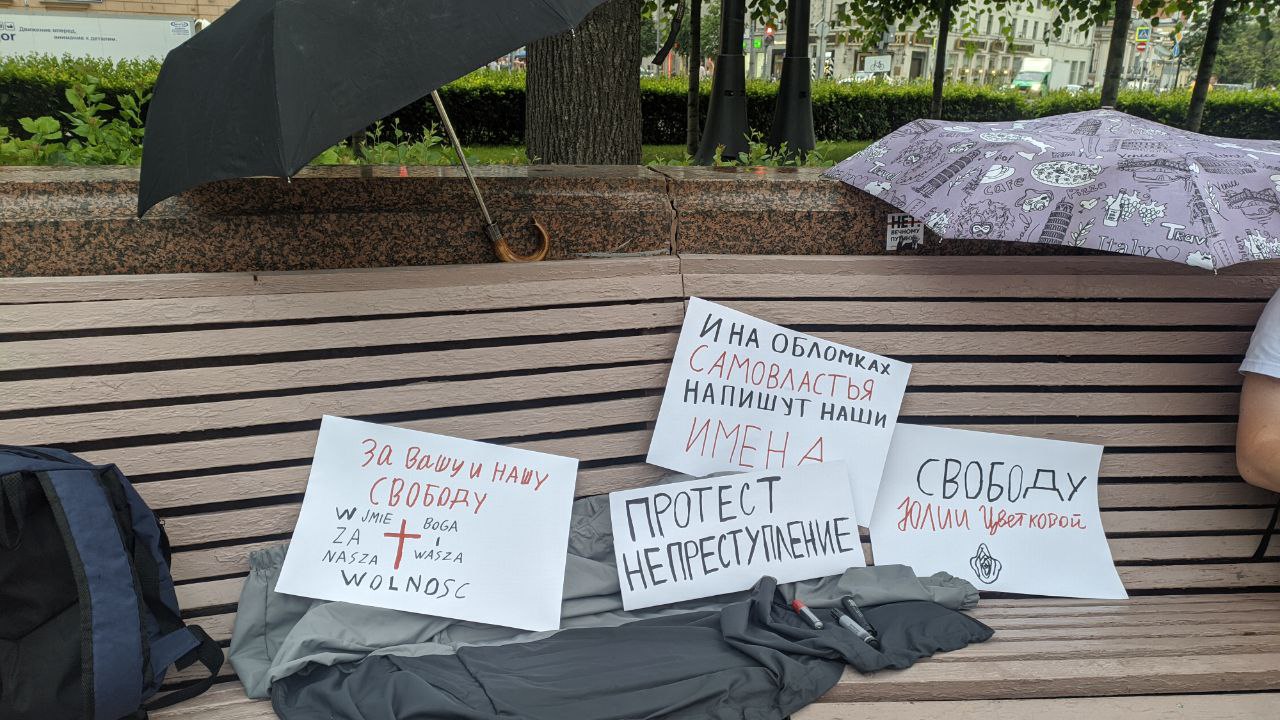 Движение вперед,
внимание к деталям.
НЕТ
ВЕЧНОМУ
ПУТИНУ
CAFE
PIZZA
Italy
Travel
И НА ОБЛОМКАХ
САМОВЛАСТЬЯ
НАПИШУТ НАШИ
ИМЕНА
ЗА ВАШУ И НАШУ
СВОБОДУ
W JMIE BOGA
ZA I
NASZA WASZA
WOLNOSC
ПРОТЕСТ
НЕПРЕСТУПЛЕНИЕ
СВОБОДУ
ЮЛИИ ЦВЕТКОВОЙ